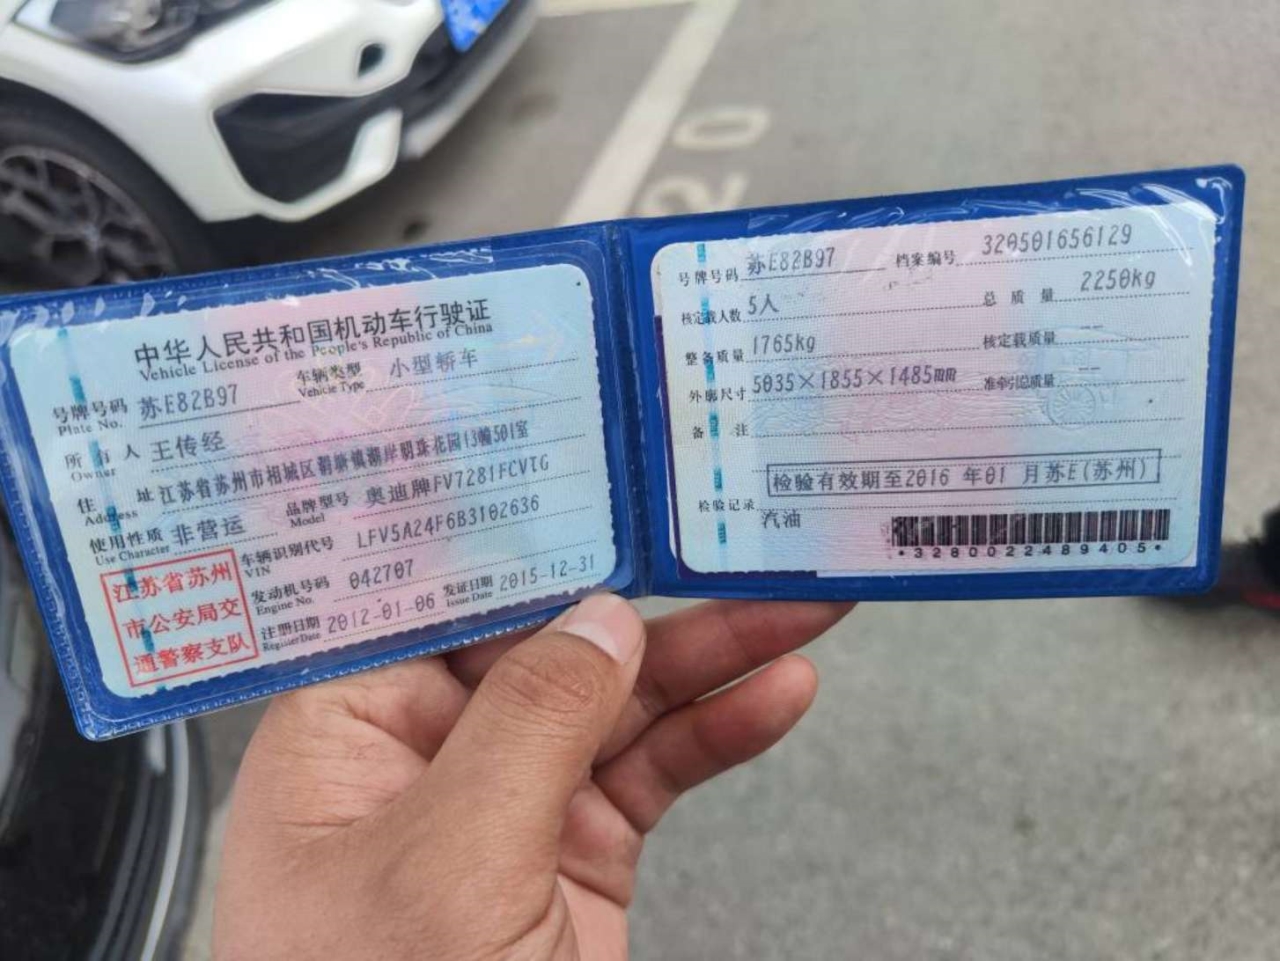 中华人民共和国机动车行驶证
Vehicle License of the People's Republic of China
号牌号码 苏E82B97 车辆类型 小型轿车
Plate No. Vehicle Type
所有人 王传经
Owner
住址 江苏省苏州市相城区湖岸明珠花园13幢501室
Address
使用性质 非营运 品牌型号 奥迪牌FV7281FCVTG
Use Character Model
车辆识别代号 LFV5A24F6B3102636
VIN
江苏省苏州
市公安局交
通警察支队
发动机号码 042707
Engine No.
注册日期 2012-01-06 发证日期 2015-12-31
Register Date Issue Date
号牌号码 苏E82B97 档案编号 320501656129
核定载人数 5人 总质量 2250kg
整备质量 1765kg 核定载质量 --
外廓尺寸 5035×1855×1485mm 准牵引总质量 --
备注
检验有效期至2016年01月苏E(苏州)
检验记录
汽油
*3280022489405*
20